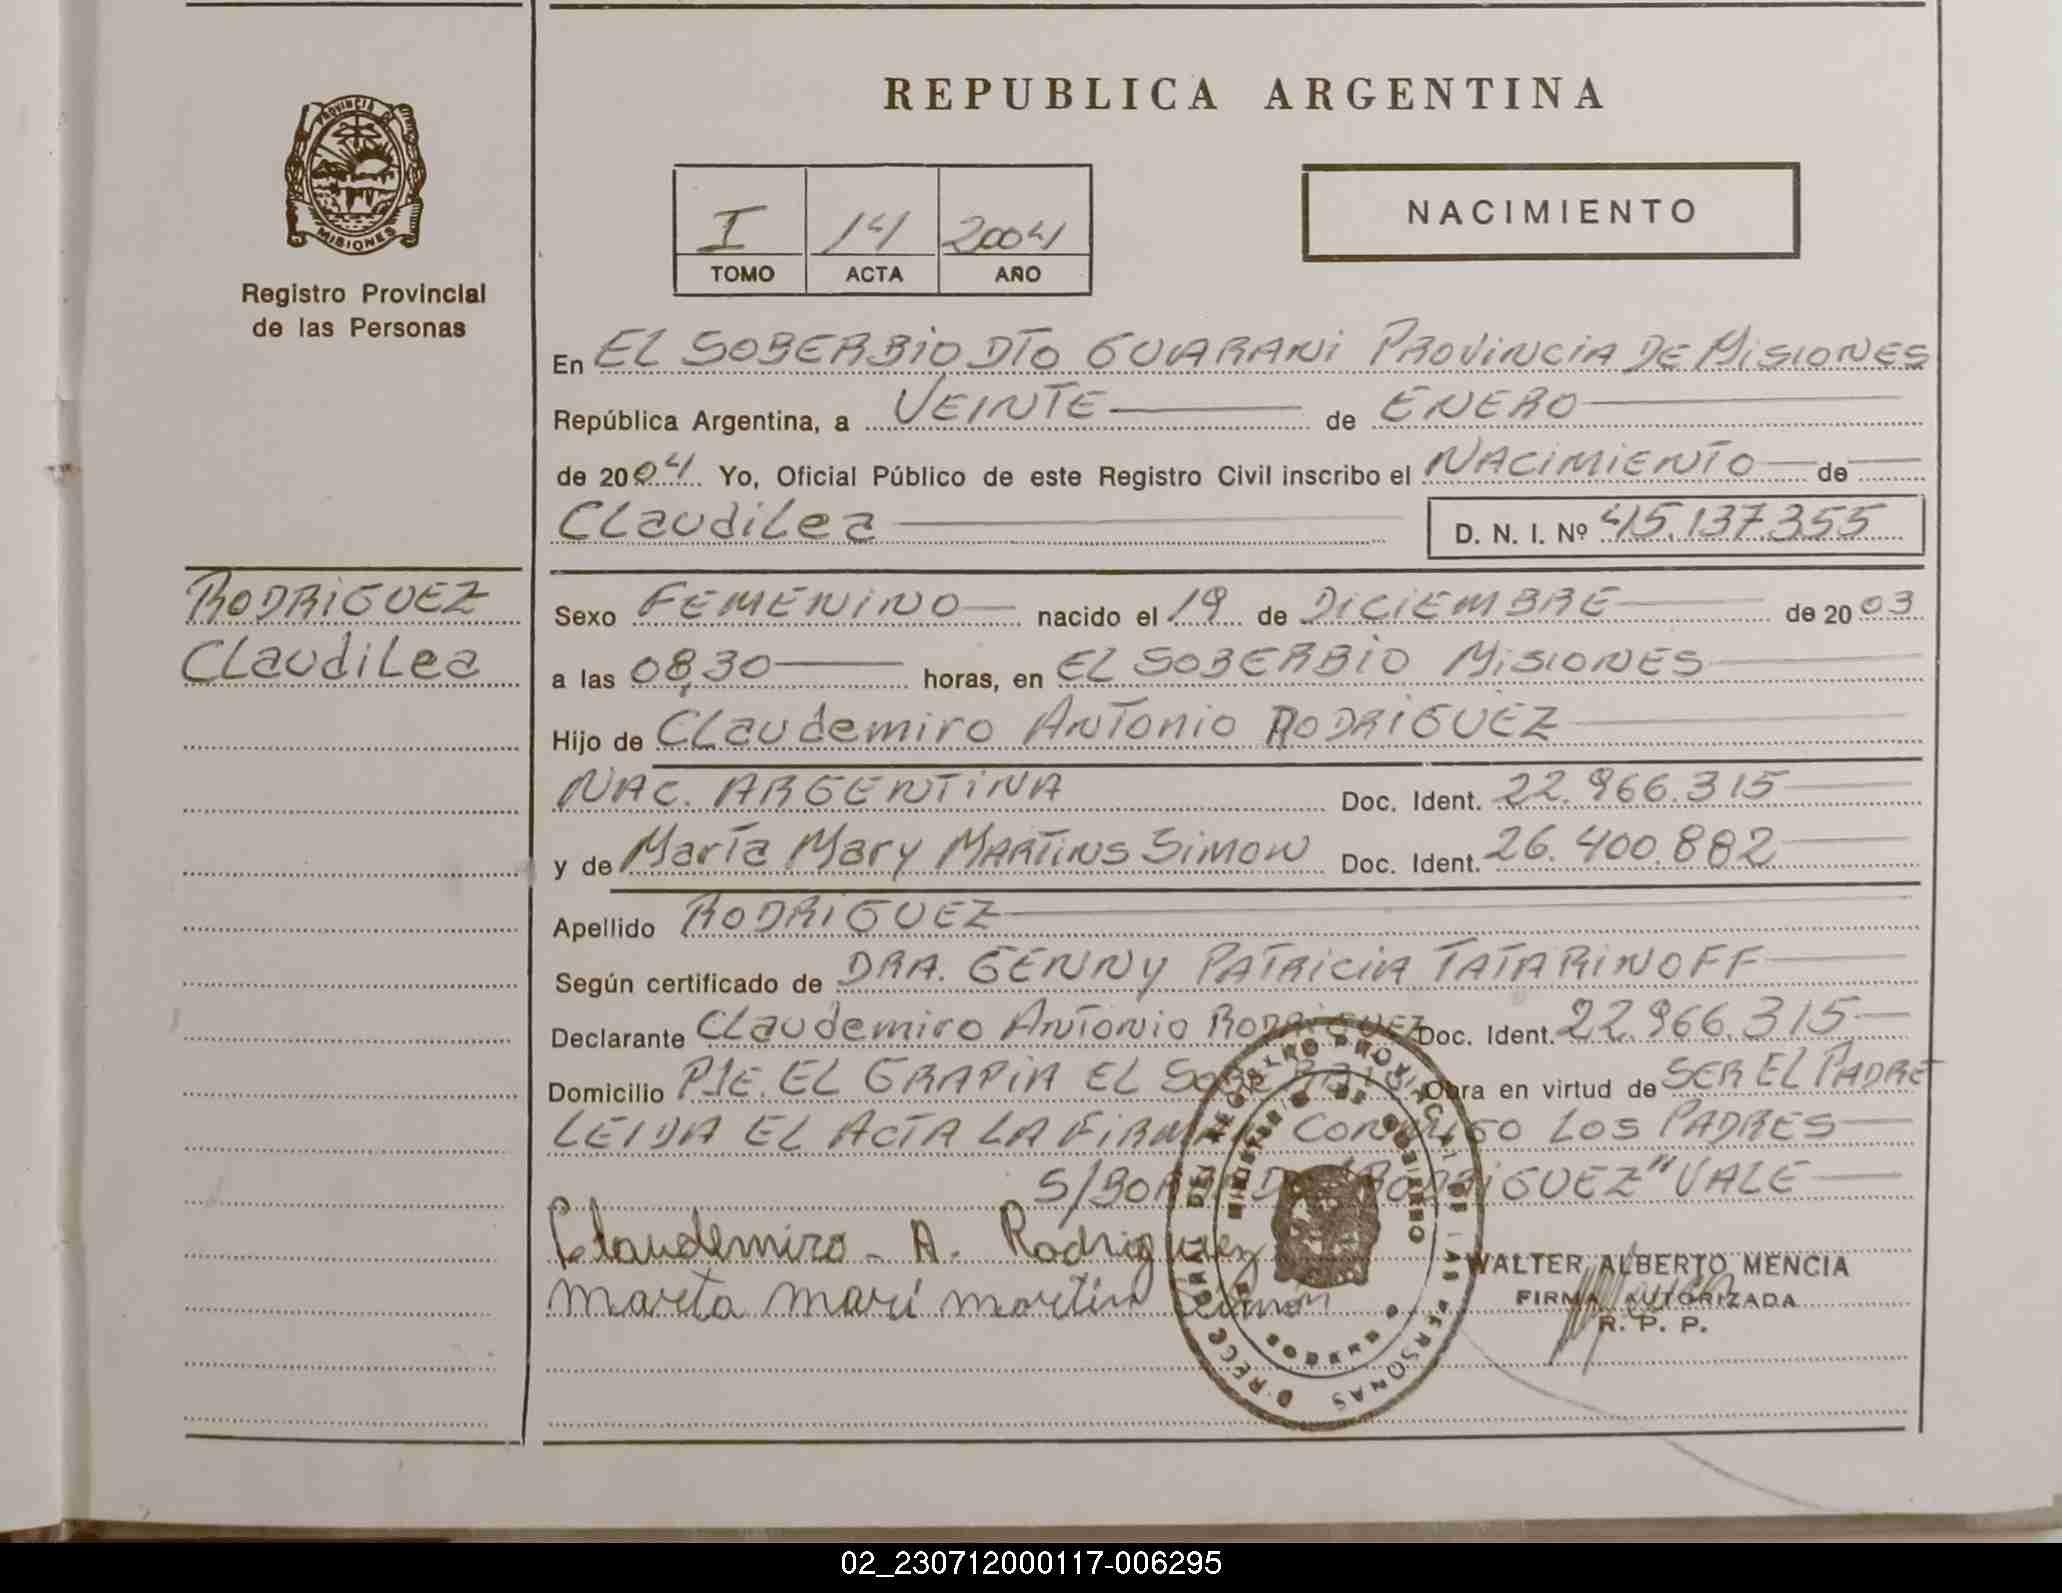 REPUBLICA ARGENTINA
PROVINCIA DE
MISIONES
Registro Provincial
de las Personas
I 14 2004
TOMO ACTA AÑO
NACIMIENTO
En EL SOBERBIO DTO GUARANI PROVINCIA DE MISIONES
República Argentina, a VEINTE de ENERO
de 2004 Yo, Oficial Público de este Registro Civil inscribo el NACIMIENTO de
CLaudiLea D. N. I. Nº 45.137.355
RODRIGUEZ
CLaudiLea
Sexo FEMENINO nacido el 19 de DICIEMBRE de 2003
a las 08,30 horas, en EL SOBERBIO MISIONES
Hijo de CLaudemiro ANTONIO RODRIGUEZ
NAC. ARGENTINA Doc. Ident. 22.966.315
y de Marta Mary MARTINS SIMON Doc. Ident. 26.400.882
Apellido RODRIGUEZ
Según certificado de DRA. GENNY PATRICIA TATARINOFF
Declarante CLaudemiro ANTONIO RODRIGUEZ Doc. Ident. 22.966.315
Domicilio PJE. EL GRAPIA EL SOBERBIO Obra en virtud de SER EL PADRE
LEIDA EL ACTA LA FIRMAN CONMIGO LOS PADRES
S/BORRADO "RODRIGUEZ" VALE
Claudemiro - A. Rodriguez
marta mari martin
WALTER ALBERTO MENCIA
FIRMA AUTORIZADA
R. P. P.
REGISTRO PROVINCIAL DE LAS PERSONAS
MINISTERIO DE GOBIERNO
02_230712000117-006295